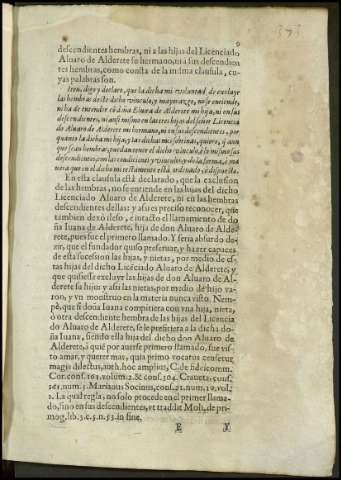 9
descendientes hembras, ni a las hijas del Licenciado
Aluaro de Alderete su hermano, ni a sus descendien
tes hembras, como consta de la misma clausula, cu-
yas palabras son.
Iten, digo y declaro, que la dicha mi voluntad de excluyr
las hembras deste dicho vinculo, y mayorazgo, no se entiende,
ni ha de entender cõ doña Eluira de Alderete mi hija, ni en sus
descendientes, ni ansi mismo en las tres hijas del señor Licencia
do Aluaro de Alderete mi hermano, ni en sus descendientes, por
quanto la dicha mi hija, y las dichas mis sobrinas, quiero, q̃ aun
que sean hembras, puedan tener el dicho vinculo, è lo mismo sus
descendientes, con las condiciones y vinculos, y de la forma, è ma
nera que en el dicho mi testamento està ordenado, è dispuesto.
En esta clausula està declarado, que la exclusion
de las hembras, no se entiende en las hijas del dicho
Licenciado Aluaro de Alderete, ni en las hembras
descendientes dellas: y assi es preciso reconocer, que
tambien dexò ileso, e intacto el llamamiento de do
ña Iuana de Alderete, hija de don Aluaro de Alde-
rete, pues fue el primero llamado. Y seria absurdo de-
zir, que el fundador quiso preseruar, y hazer capaces
de esta sucesion las hijas, y nietas, por medio de es-
tas hijas del dicho Licẽciado Aluaro de Alderete, y
que quisiesse excluyr las hijas de don Aluaro de Al-
derete su hijo y assi las nietas, por medio de hijo va-
ron, y vn monstruo en la materia nunca visto. Nem-
pè, que si doña Iuana compitiera con vna hija, nieta,
o otra descendiente hembra de las hijas del Licencia
do Aluaro de Alderete, se le prefiriera a la dicha do-
ña Iuana, siendo ella hija del dicho don Aluaro de
Alderete, à què por auerse primero llamado, fue vis-
to amar, y querer mas, quia primo vocatus censetur
magis dilectus, auth. hoc amplius, C. de fideicomm.
Cor. cons. 162. volum. 2. & cons. 304. Craueta: cons.
161. num. 3. Marianus Socinus, cons. 21. num. 19. vol.
2. La qual regla, no solo procede en el primer llama-
do, sino en sus descendientes, vt tradit Moli. de pri-
mog. lib. 3. c. 5. n. 53. in fine.
E